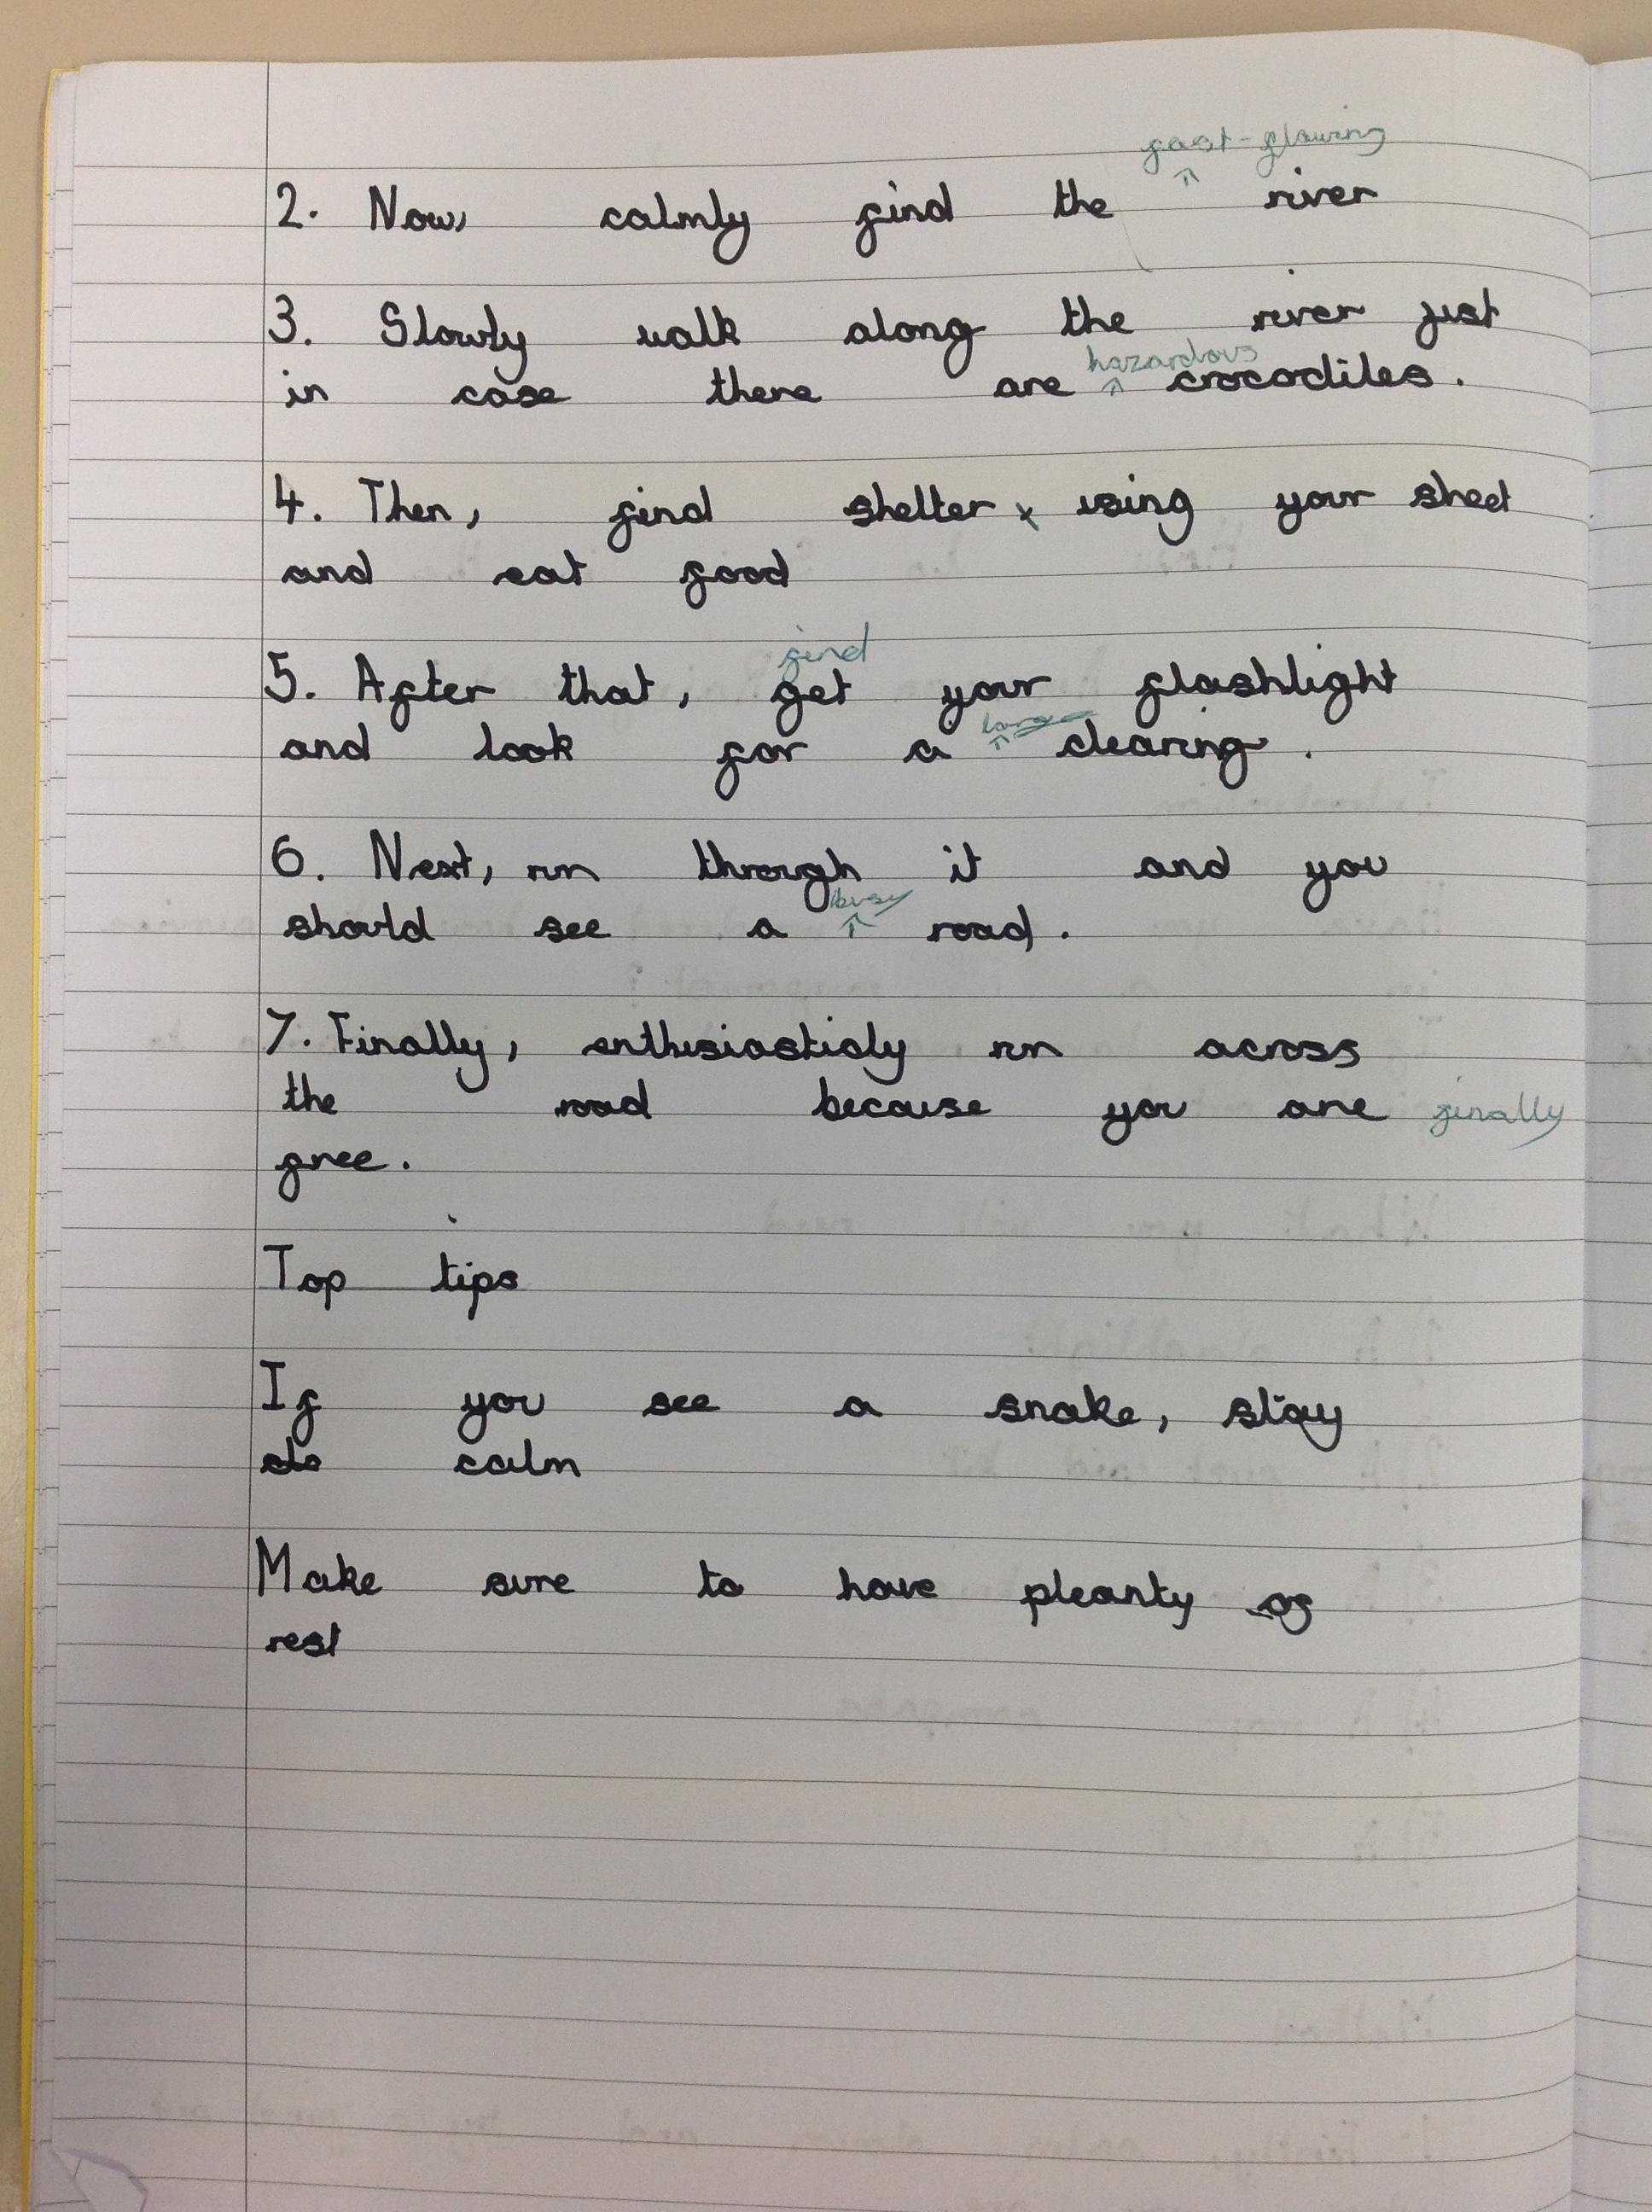 fast-flowing
2. Now, calmly find the ^ river
3. Slowly walk along the river just
hazardous
in case there are ^ crocodiles.
4. Then, find shelter x using your sheet
and eat food
find
5. After that, get your flashlight
large
and look for a ^ clearing.
6. Next, run through it and you
busy
should see a ^ road.
7. Finally, enthusiasticly run across
the road because you are finally
free.
Top tips
If you see a snake, stay
calm
Make sure to have pleanty of
rest